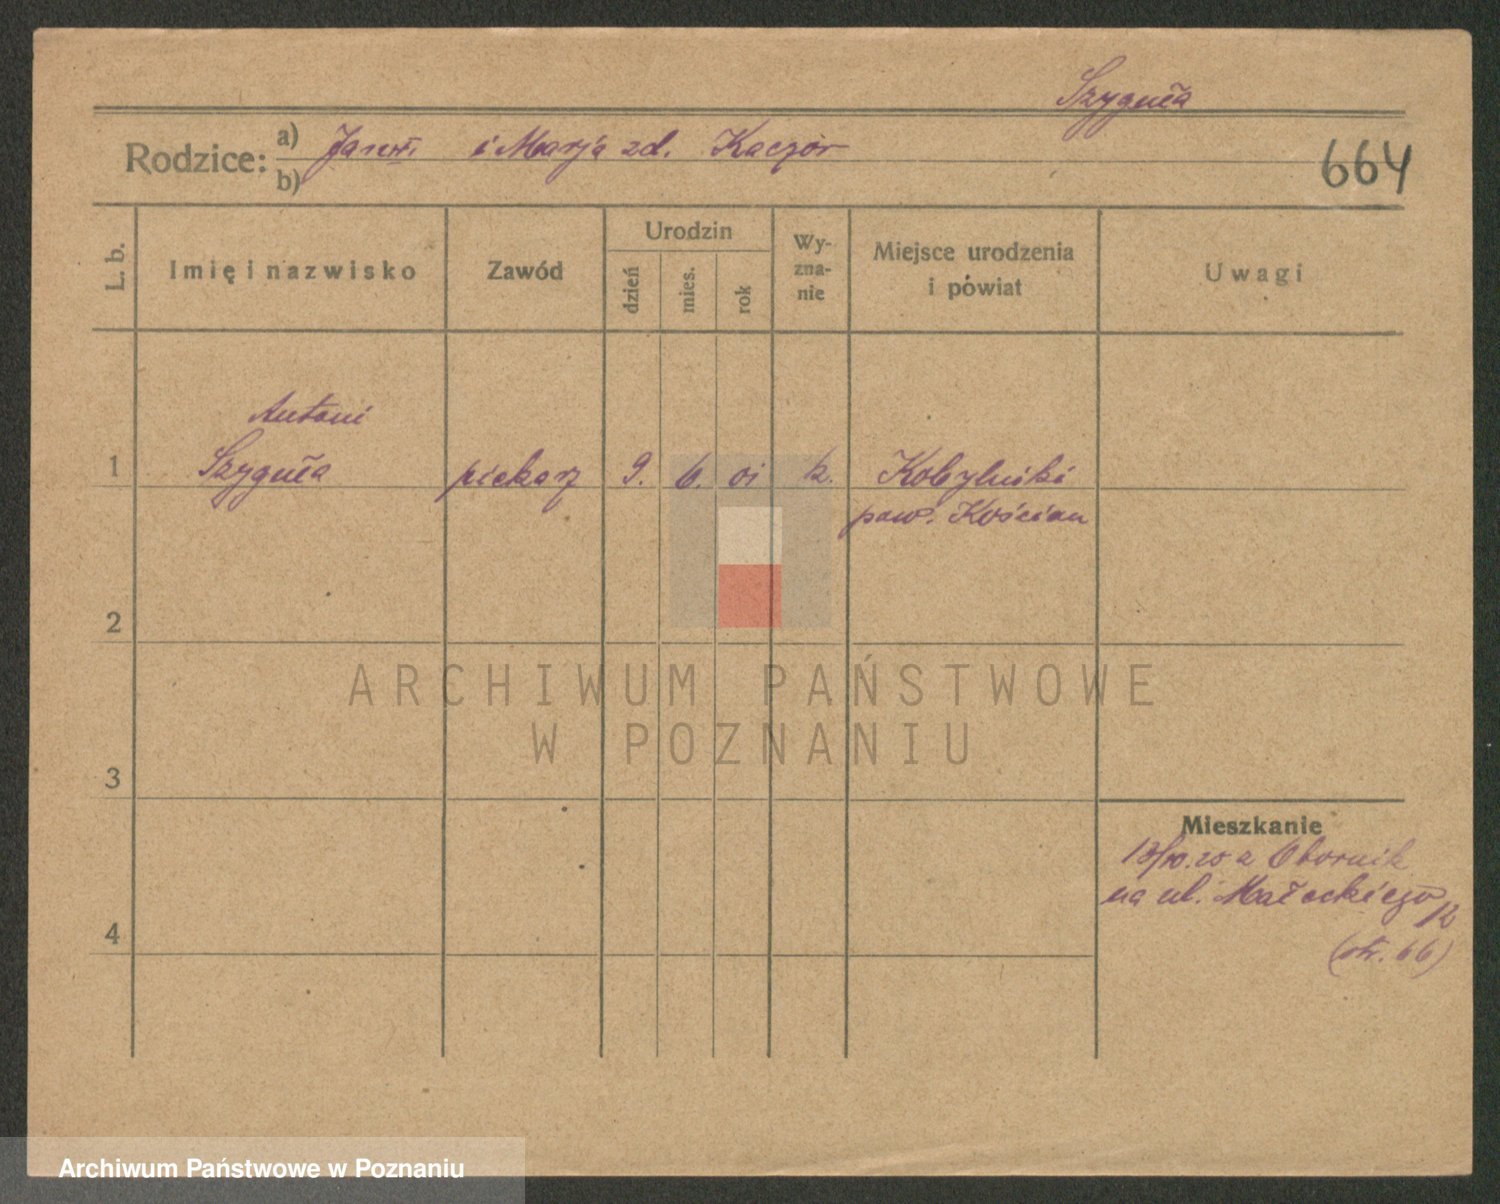 Szyguła
Rodzice: a) i Marja zd. Kaczor
b)
664
L. b.
Imię i nazwisko
Zawód
Urodzin
dzień
mies.
rok
Wy-
zna-
nie
Miejsce urodzenia
i powiat
Uwagi
Antoni
1 Szyguła piekarz 9. 6. 01 k. Kobylniki
pow. Kościan
2
3
4
Mieszkanie
z Obornik
na ul. Małeckiego 12
(str. 66)
ARCHIWUM PAŃSTWOWE
W POZNANIU
Archiwum Państwowe w Poznaniu